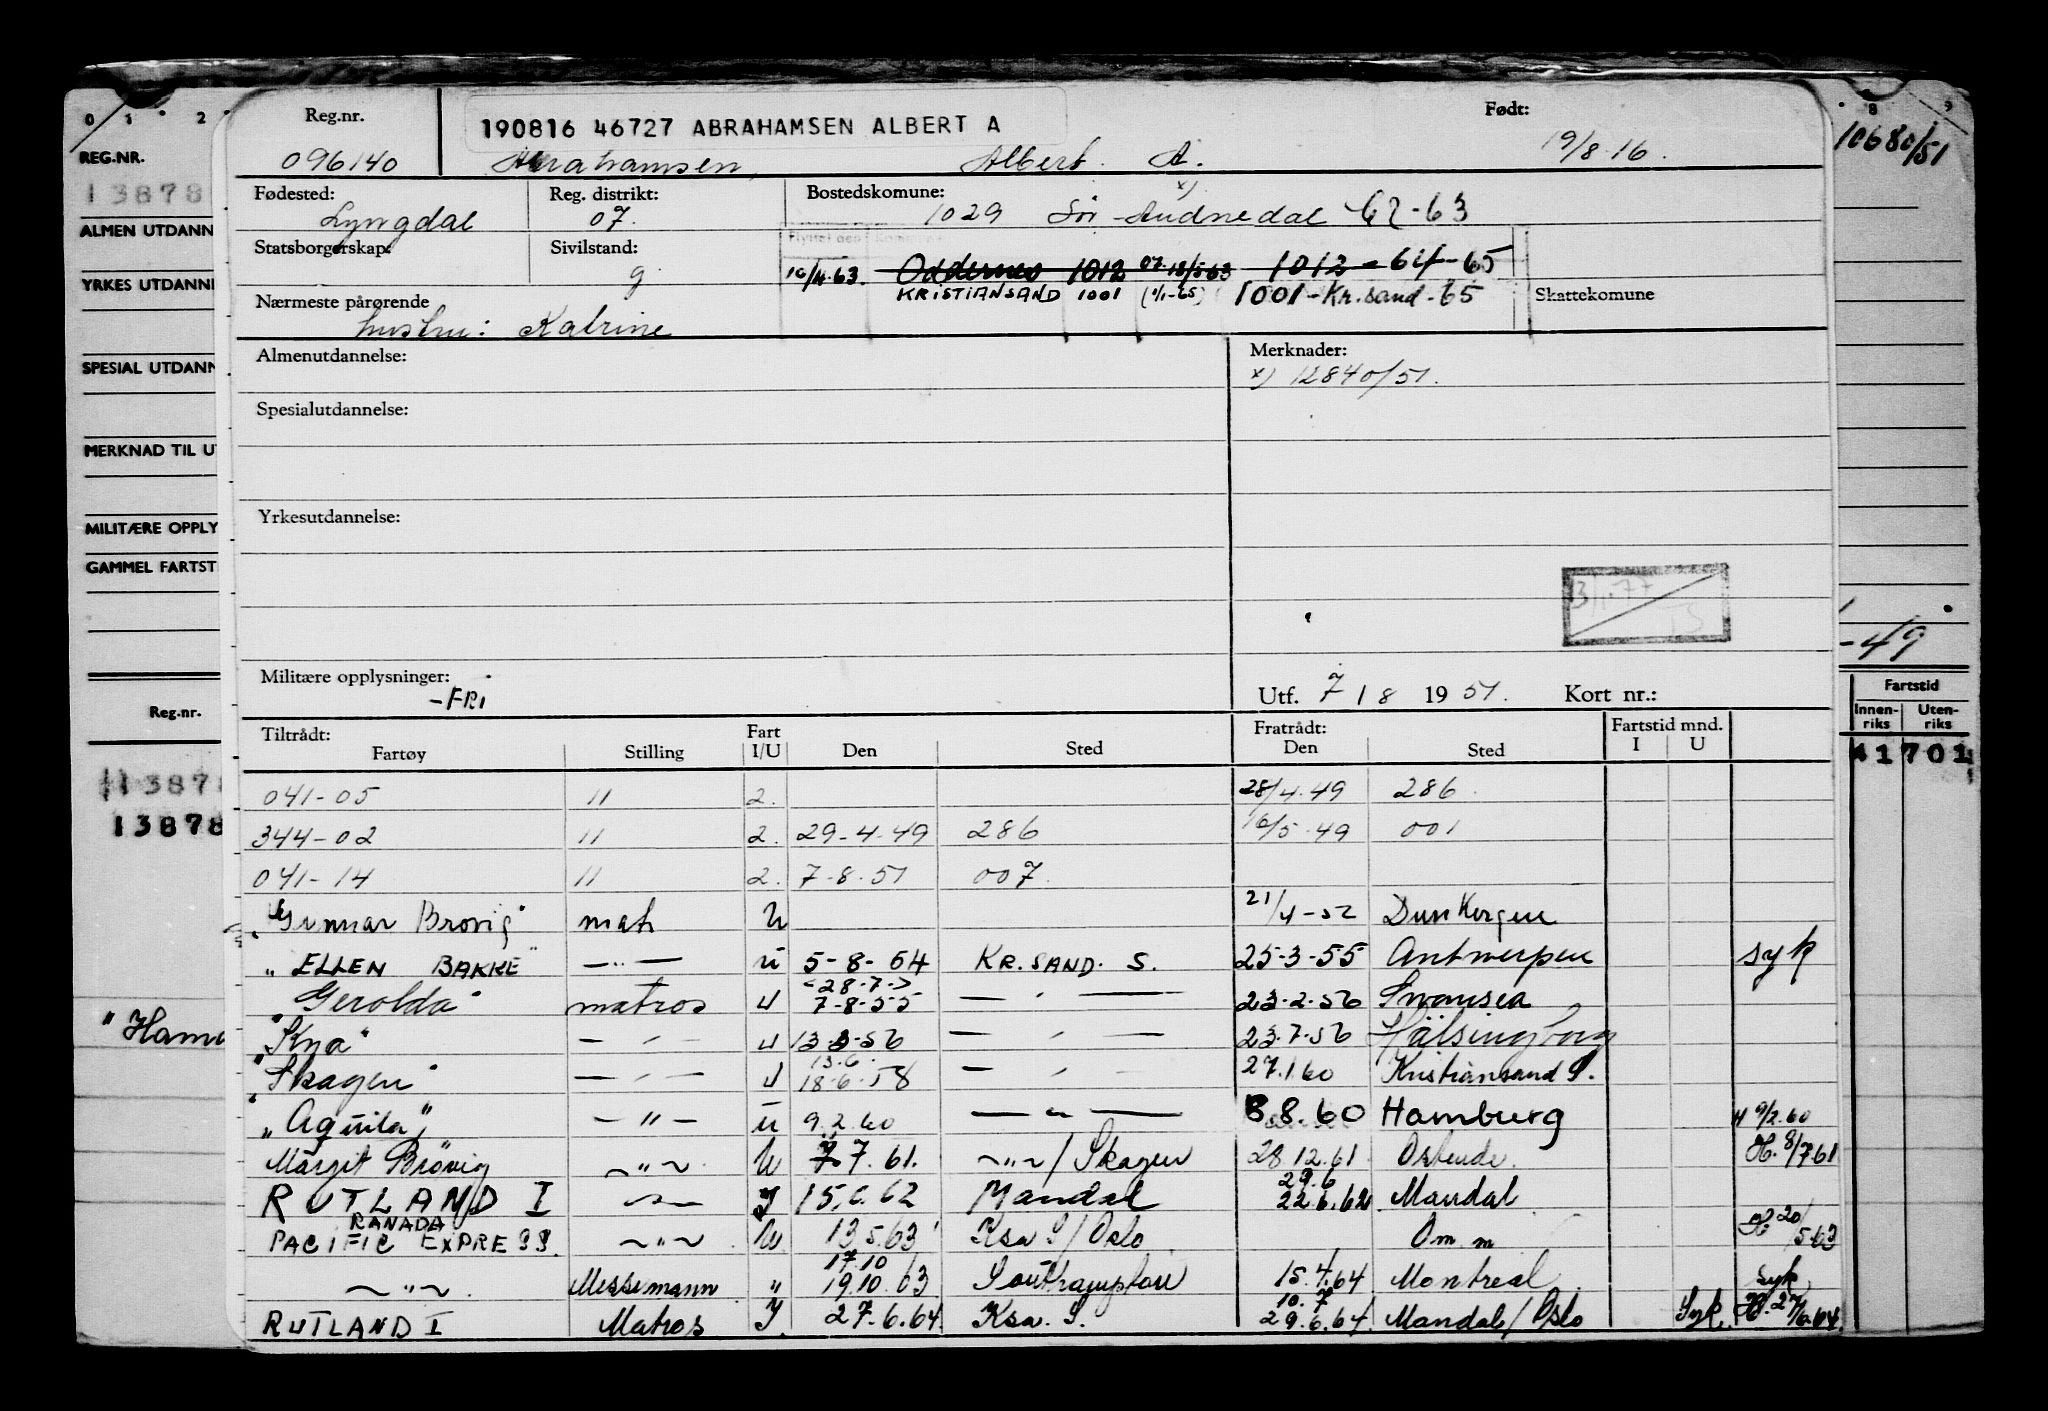 0 1 2 8 9
Reg.nr. Født:
190816 46727 ABRAHAMSEN ALBERT A
096140 Abrahamsen, Albert A. 19/8.16.
10680/51
REG.NR.
13878
Fødested: Reg. distrikt: Bostedskomune: x)
Lyngdal 07. 1029 Sör-Audnedal 62-63
ALMEN UTDANN
Statsborgerskap: Sivilstand: Flyttet den Kommune
g 16/4.63. Oddernes 1012 07.18/5.63 1012-64-65
YRKES UTDANNE
KRISTIANSAND 1001 (1/1-65) 1001-Kr.sand-65 Skattekomune
Nærmeste pårørende
hustru: Katrine
Almenutdannelse: Merknader:
SPESIAL UTDANN
x) 12840/51.
Spesialutdannelse:
MERKNAD TIL U
Yrkesutdannelse:
MILITÆRE OPPLY
GAMMEL FARTST
-49
Militære opplysninger:
-FRI
Utf. 7/8 1951. Kort nr.:
Reg.nr. Fartstid
Innen-riks Uten-riks
Tiltrådt: Fart Fratrådt: Fartstid mnd.
Fartøy Stilling I/U Den Sted Den Sted I U
041-05 " 2. 28/4.49 286
13878 41701
344-02 " 2. 29-4-49 286 16/5.49 001
13878
041-14 " 2. 7-8-51 007.
"Gunnar Brovig" matr U 21/4-52 Dunkerque
"ELLEN BAKKE" -"- u 5-8-54 KR.SAND. S. 25-3-55 Antwerpen syk
28.7.
"Gerolda" matros u 7-8-55 -"- 23-2-56 Swansea
"Hama
"Kya" -"- u 13-3-56 -"- 23.7-56 Hälsingborg
13.6.
"Skagen" -"- u 18-6-58 -"- 27.1.60 Kristiansand S.
"Aquila" -"- u 9.2.60 -"- 8.8.60 Hamburg H 9/2.60
Margit Brövig -"- U 7.7.61. -"-/Skagen 28.12.61 Ostende. H.8/7.61
29.6
RUTLAND I -"- I 15.6.62 Mandal 22.6.62 Mandal
RANADA
PACIFIC EXPRESS. -"- U. 13.5.63 Ksa S/Oslo Om. m H 20/5.63
17.10
-"- Messemann " 19.10.63 Southampton 15.4.64 Montreal Syk
10.7
RUTLAND I Matros I 27.6.64 Ksa. S. 29.6.64 Mandal/Oslo Syk. H.27/6.64